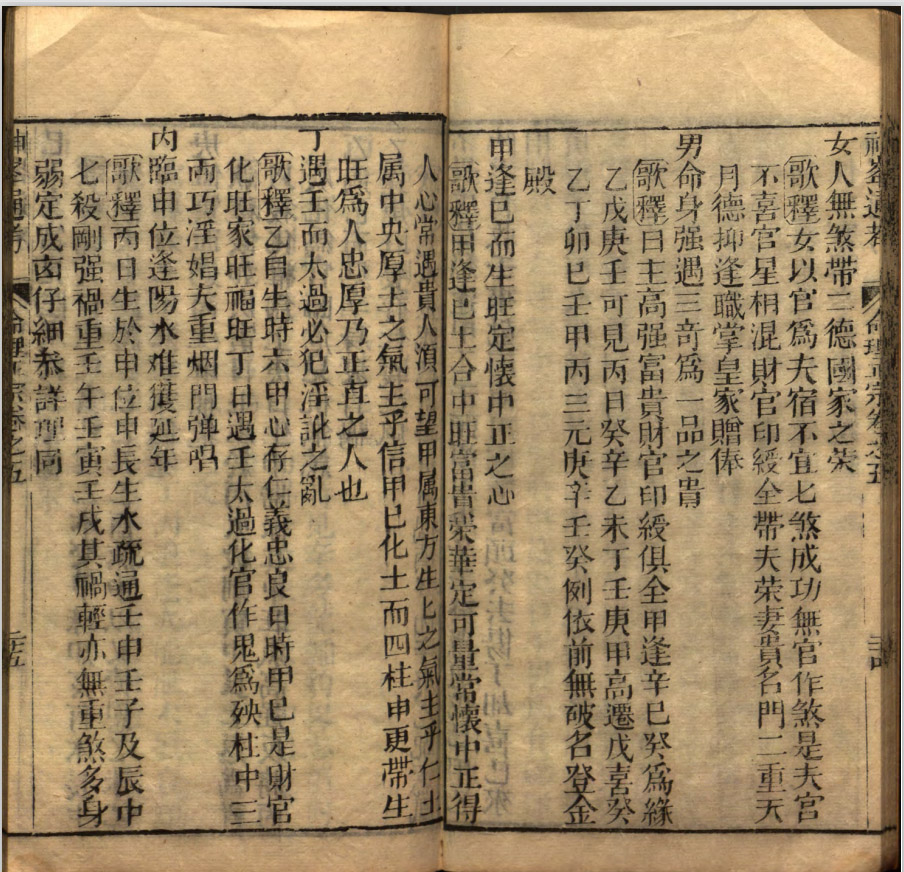 神峯通考 命理正宗卷之五 二十四
女人無煞帶二德國家之榮
歌釋女以官爲夫宿不宜七煞成功無官作煞是夫宮
不喜官星相混財官印綬全帶夫荣妻貴名門二重天
月德抑逢職掌皇家贈俸
男命身强遇三奇爲一品之貴
歌釋日主高强富貴財官印綬俱全甲逢辛巳癸爲緣
乙戊庚壬可見丙日癸辛乙未丁壬庚甲高遷戊喜癸
乙丁卯巳壬甲丙三元庚辛壬癸例依前無破名登金
殿
甲逢巳而生旺定懷中正之心
歌釋甲逢巳土合中旺富貴榮華定可量常懷中正得
人心常遇貴人湏可望甲属東方生七之氣主乎仁土
属中央厚土之氣主乎信甲巳化土而四柱申更帶生
旺爲人忠厚乃正直之人也
丁遇壬而太過必犯淫訛之亂
歌釋乙自生時六甲心存仁義忠良日時甲巳是財官
化旺家旺福旺丁日遇壬太過化官作鬼爲殃柱中三
兩巧淫娼夫重烟門弹唱
丙臨申位逢陽水难獲延年
歌釋丙日生於申位申長生水疏通壬申壬子及辰中
七殺剛强禍重壬午壬寅壬戌其禍輕亦無重煞多身
弱定成凶仔細叅詳理同
神峯通考 命理正宗卷之五 二十五